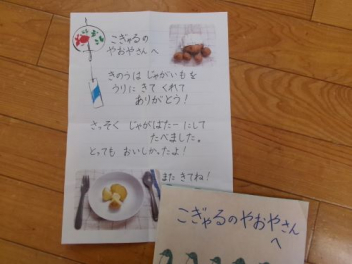 こぎゃるの
やおやさんへ
きのうは じゃがいもを
うりに きて くれて
ありがとう!
さっそく じゃがばたーにして
たべました。
とっても おいしかったよ!
また きてね!
こぎゃるのやおやさん
へ